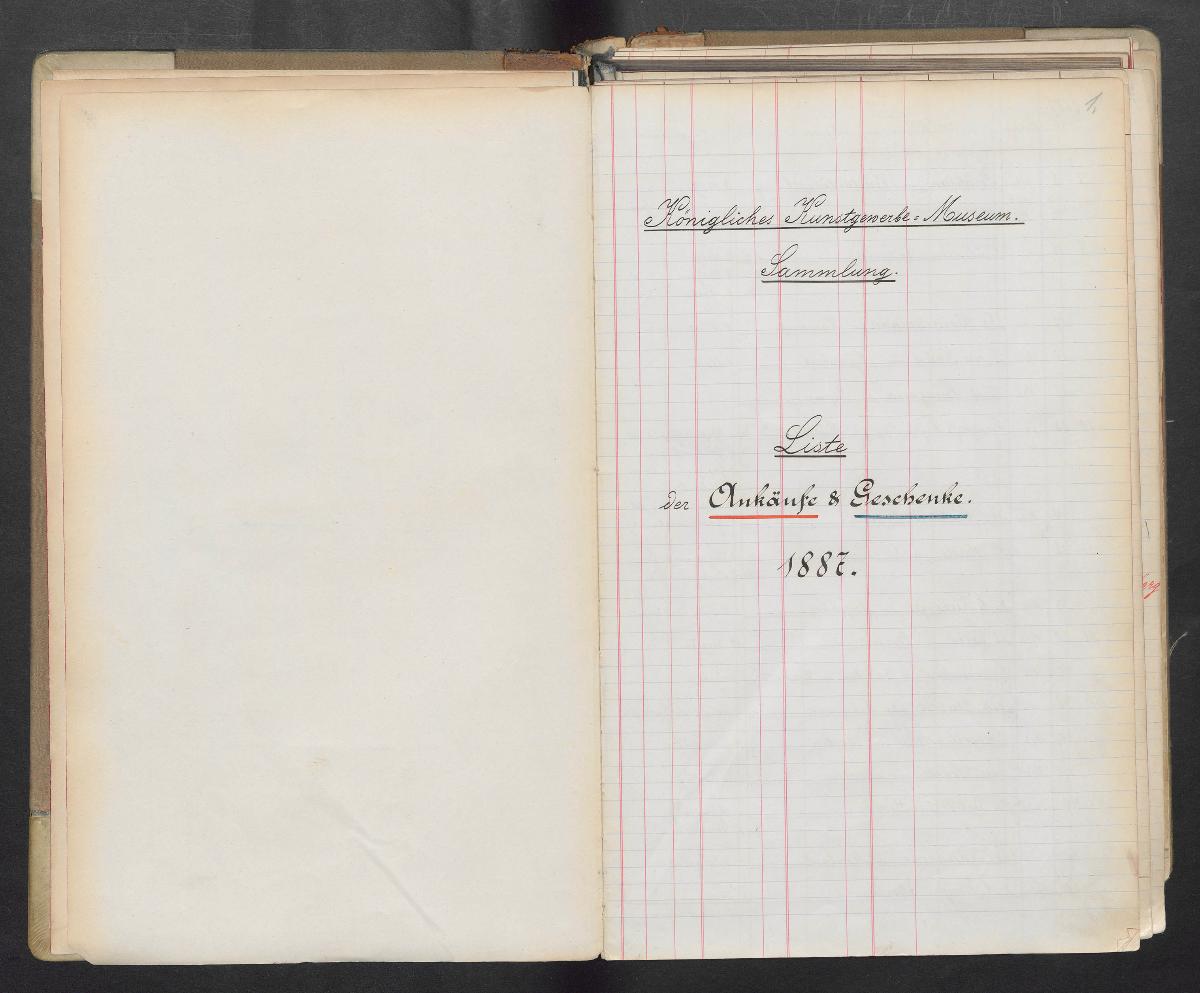 1,
Königliches Kunstgewerbe=Museum.
Sammlung.
Liste
der Ankäufe & Geschenke.
1887.